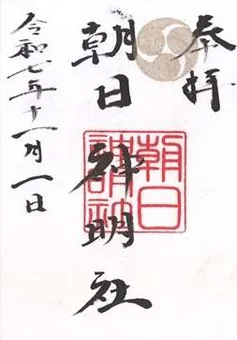 奉拝
朝日神明社
朝日
令和七年十一月一日